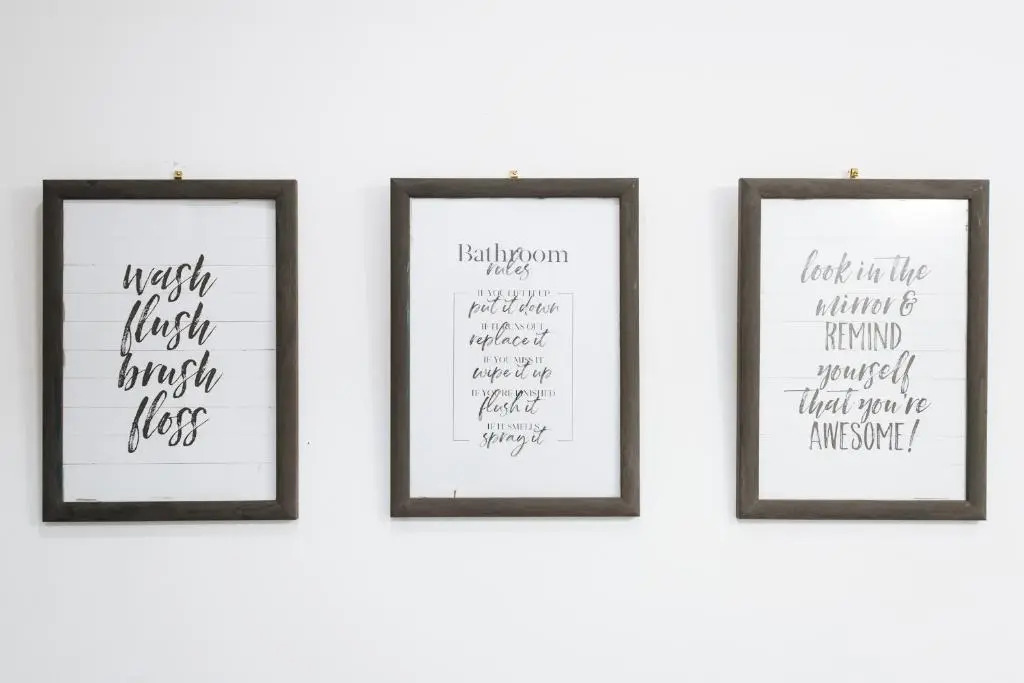 wash
flush
brush
floss
Bathroom
rules
IF YOU LIFT IT UP
put it down
IF IT RUNS OUT
replace it
IF YOU MISS IT
wipe it up
IF YOU'RE FINISHED
flush it
IF IT SMELLS
spray it
look in the
mirror &
REMIND
yourself
that you're
AWESOME!